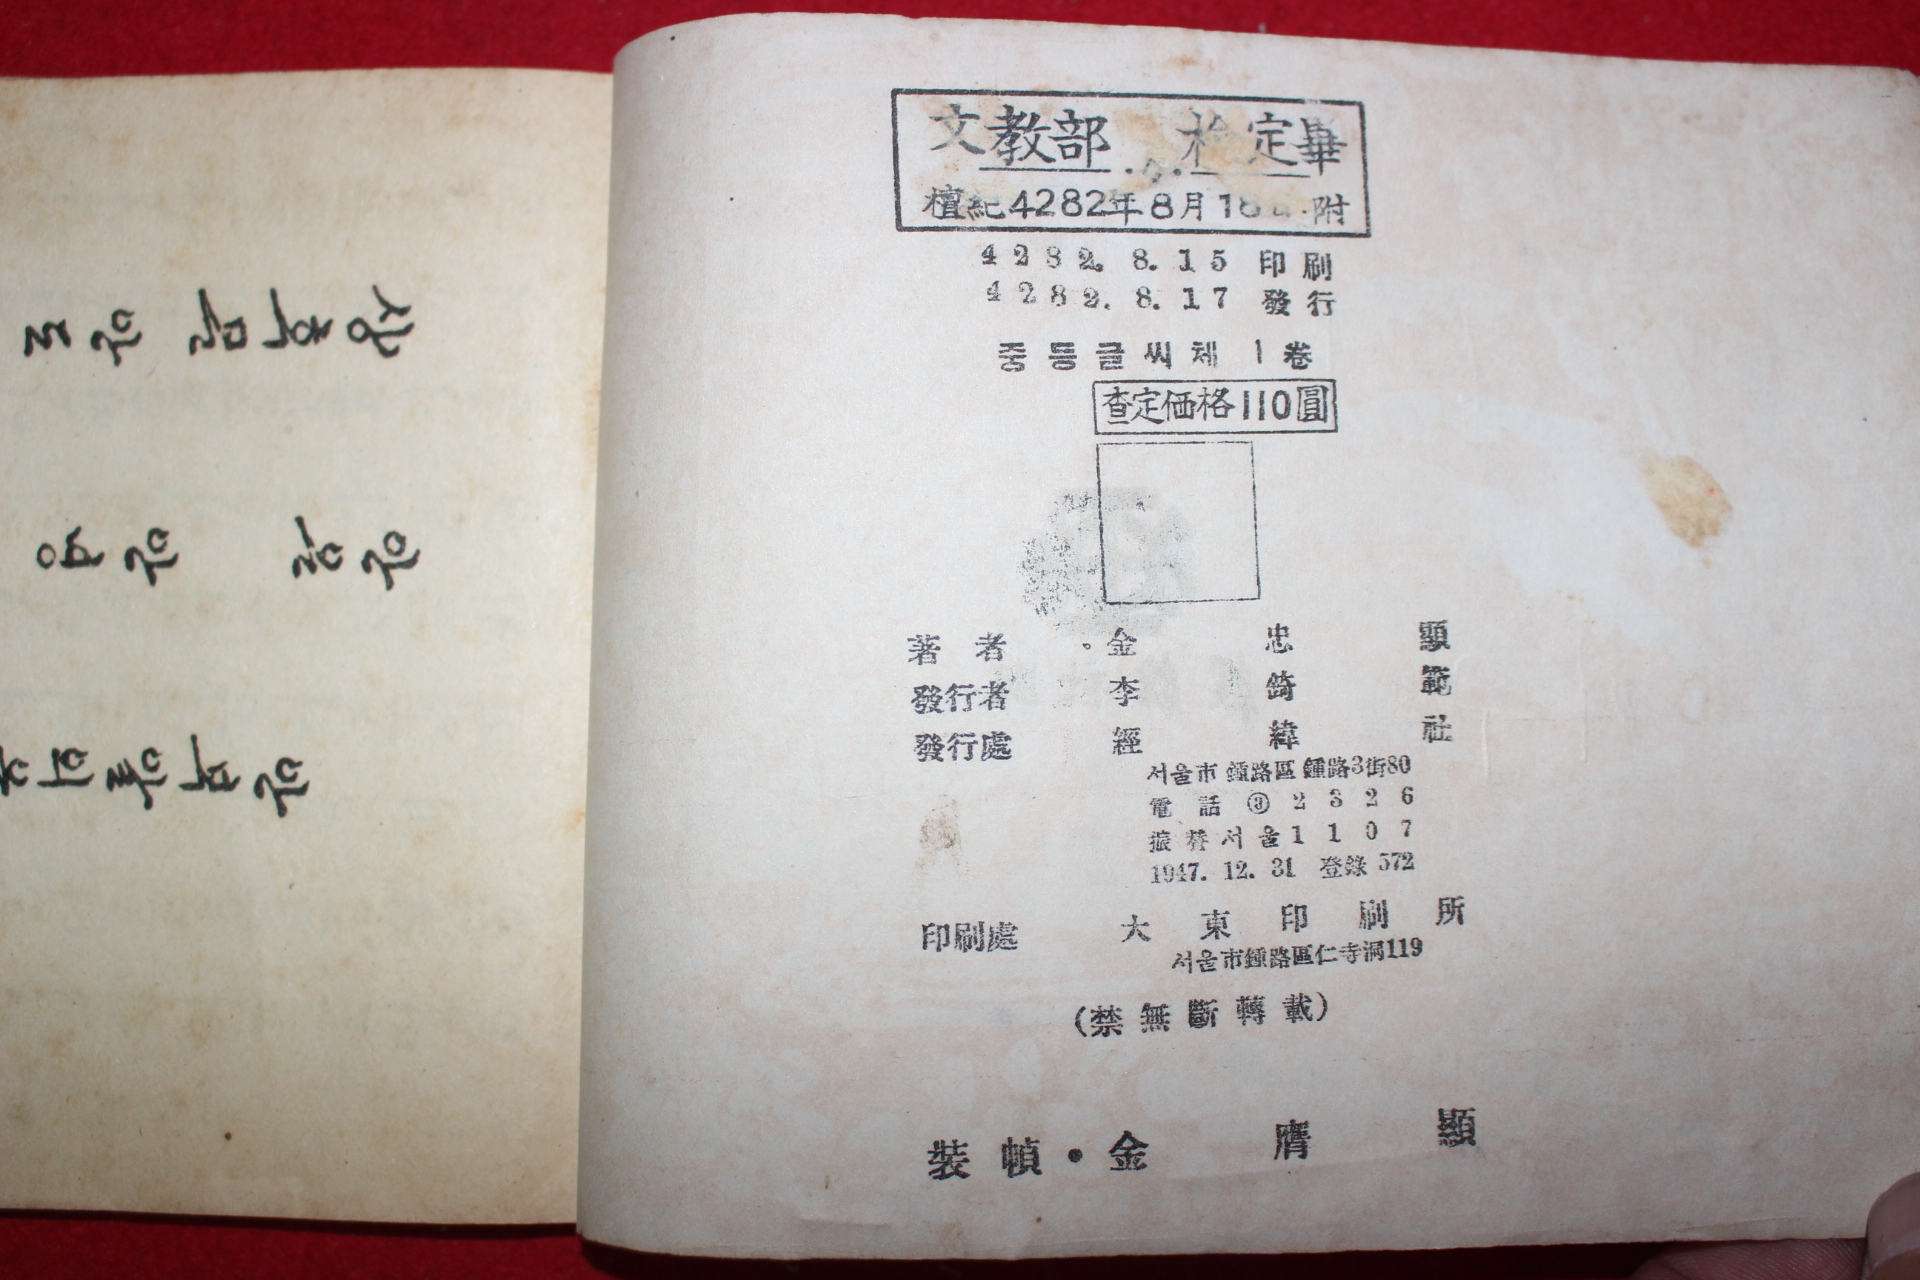 文敎部 檢定畢
檀紀4282年8月18日附
4282. 8. 15 印刷
4282. 8. 17 發行
중등글씨체 1 卷
査定価格110圓
著者 · 金忠顯
發行者 李錡範
發行處 經緯社
서울市 鍾路區 鍾路3街80
電話 ③ 2326
振替서울1107
1947. 12. 31 登錄 572
印刷處 大東印刷所
서울市鍾路區仁寺洞119
(禁無斷轉載)
裝幀 • 金膺顯